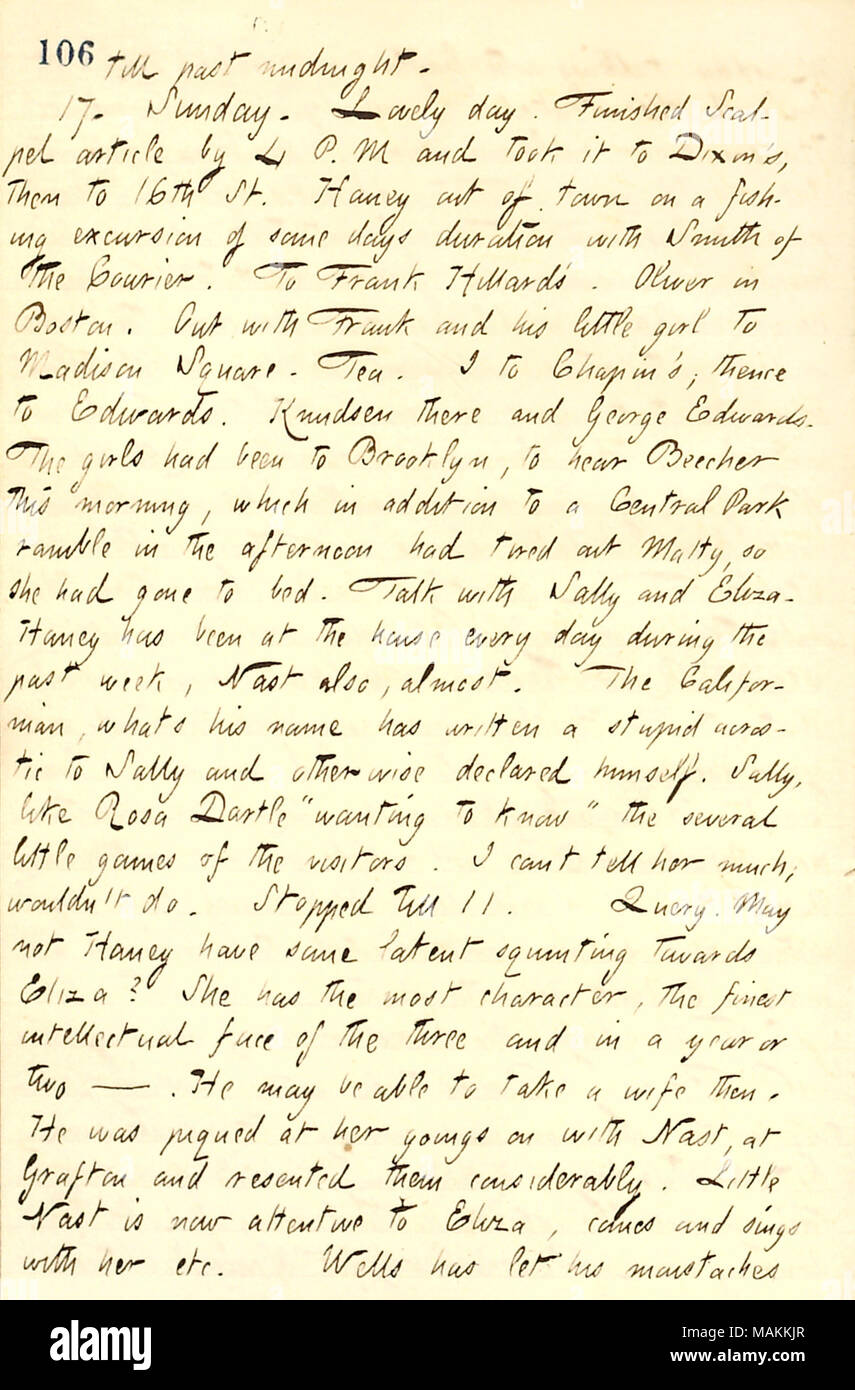 106
till past midnight.
17. Sunday. Lovely day. Finished Scal-
pel article by 4 P. M and took it to Dixon's,
then to 16th St. Haney out of town on a fish-
ing excursion of some days duration with Smith of
the Courier. To Frank Hillard's. Oliver in
Boston. Out with Frank and his little girl to
Madison Square. Tea. I to Chapin's; thence
to Edwards. Knudsen there and George Edwards.
The girls had been to Brooklyn, to hear Beecher
this morning, which in addition to a Central Park
ramble in the afternoon had tired out Matty, so
she had gone to bed. Talk with Sally and Eliza.
Haney has been at the house every day during the
past week, Nast also, almost. The Califor-
nian, whats his name has written a stupid acros-
tic to Sally and otherwise declared himself. Sally,
like Rosa Dartle "wanting to know" the several
little games of the visitors. I can't tell her much;
wouldn't do. Stopped till 11. Query. May
not Haney have some latent squinting towards
Eliza? She has the most character, the finest
intellectual face of the three and in a year or
two —. He may be able to take a wife then.
He was piqued at her goings on with Nast, at
Grafton and resented them considerably. Little
Nast is now attentive to Eliza, comes and sings
with her etc. Wells has let his moustaches
alamy
Image ID: MAKKJR
www.alamy.com